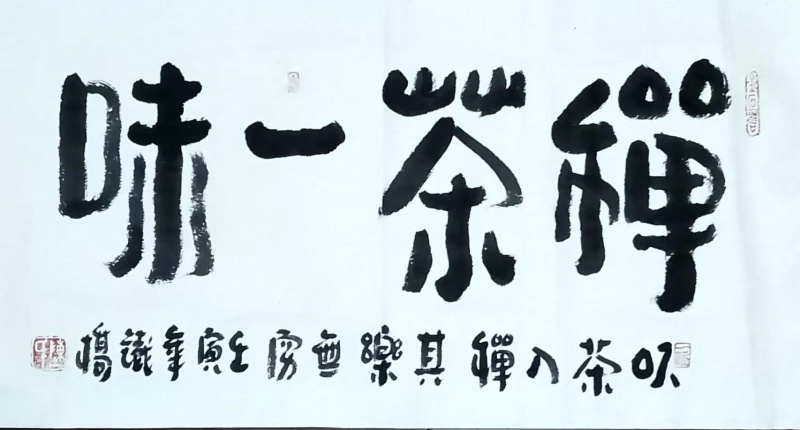 禪茶一味
吹茶入禪其樂無穷壬寅年識橋